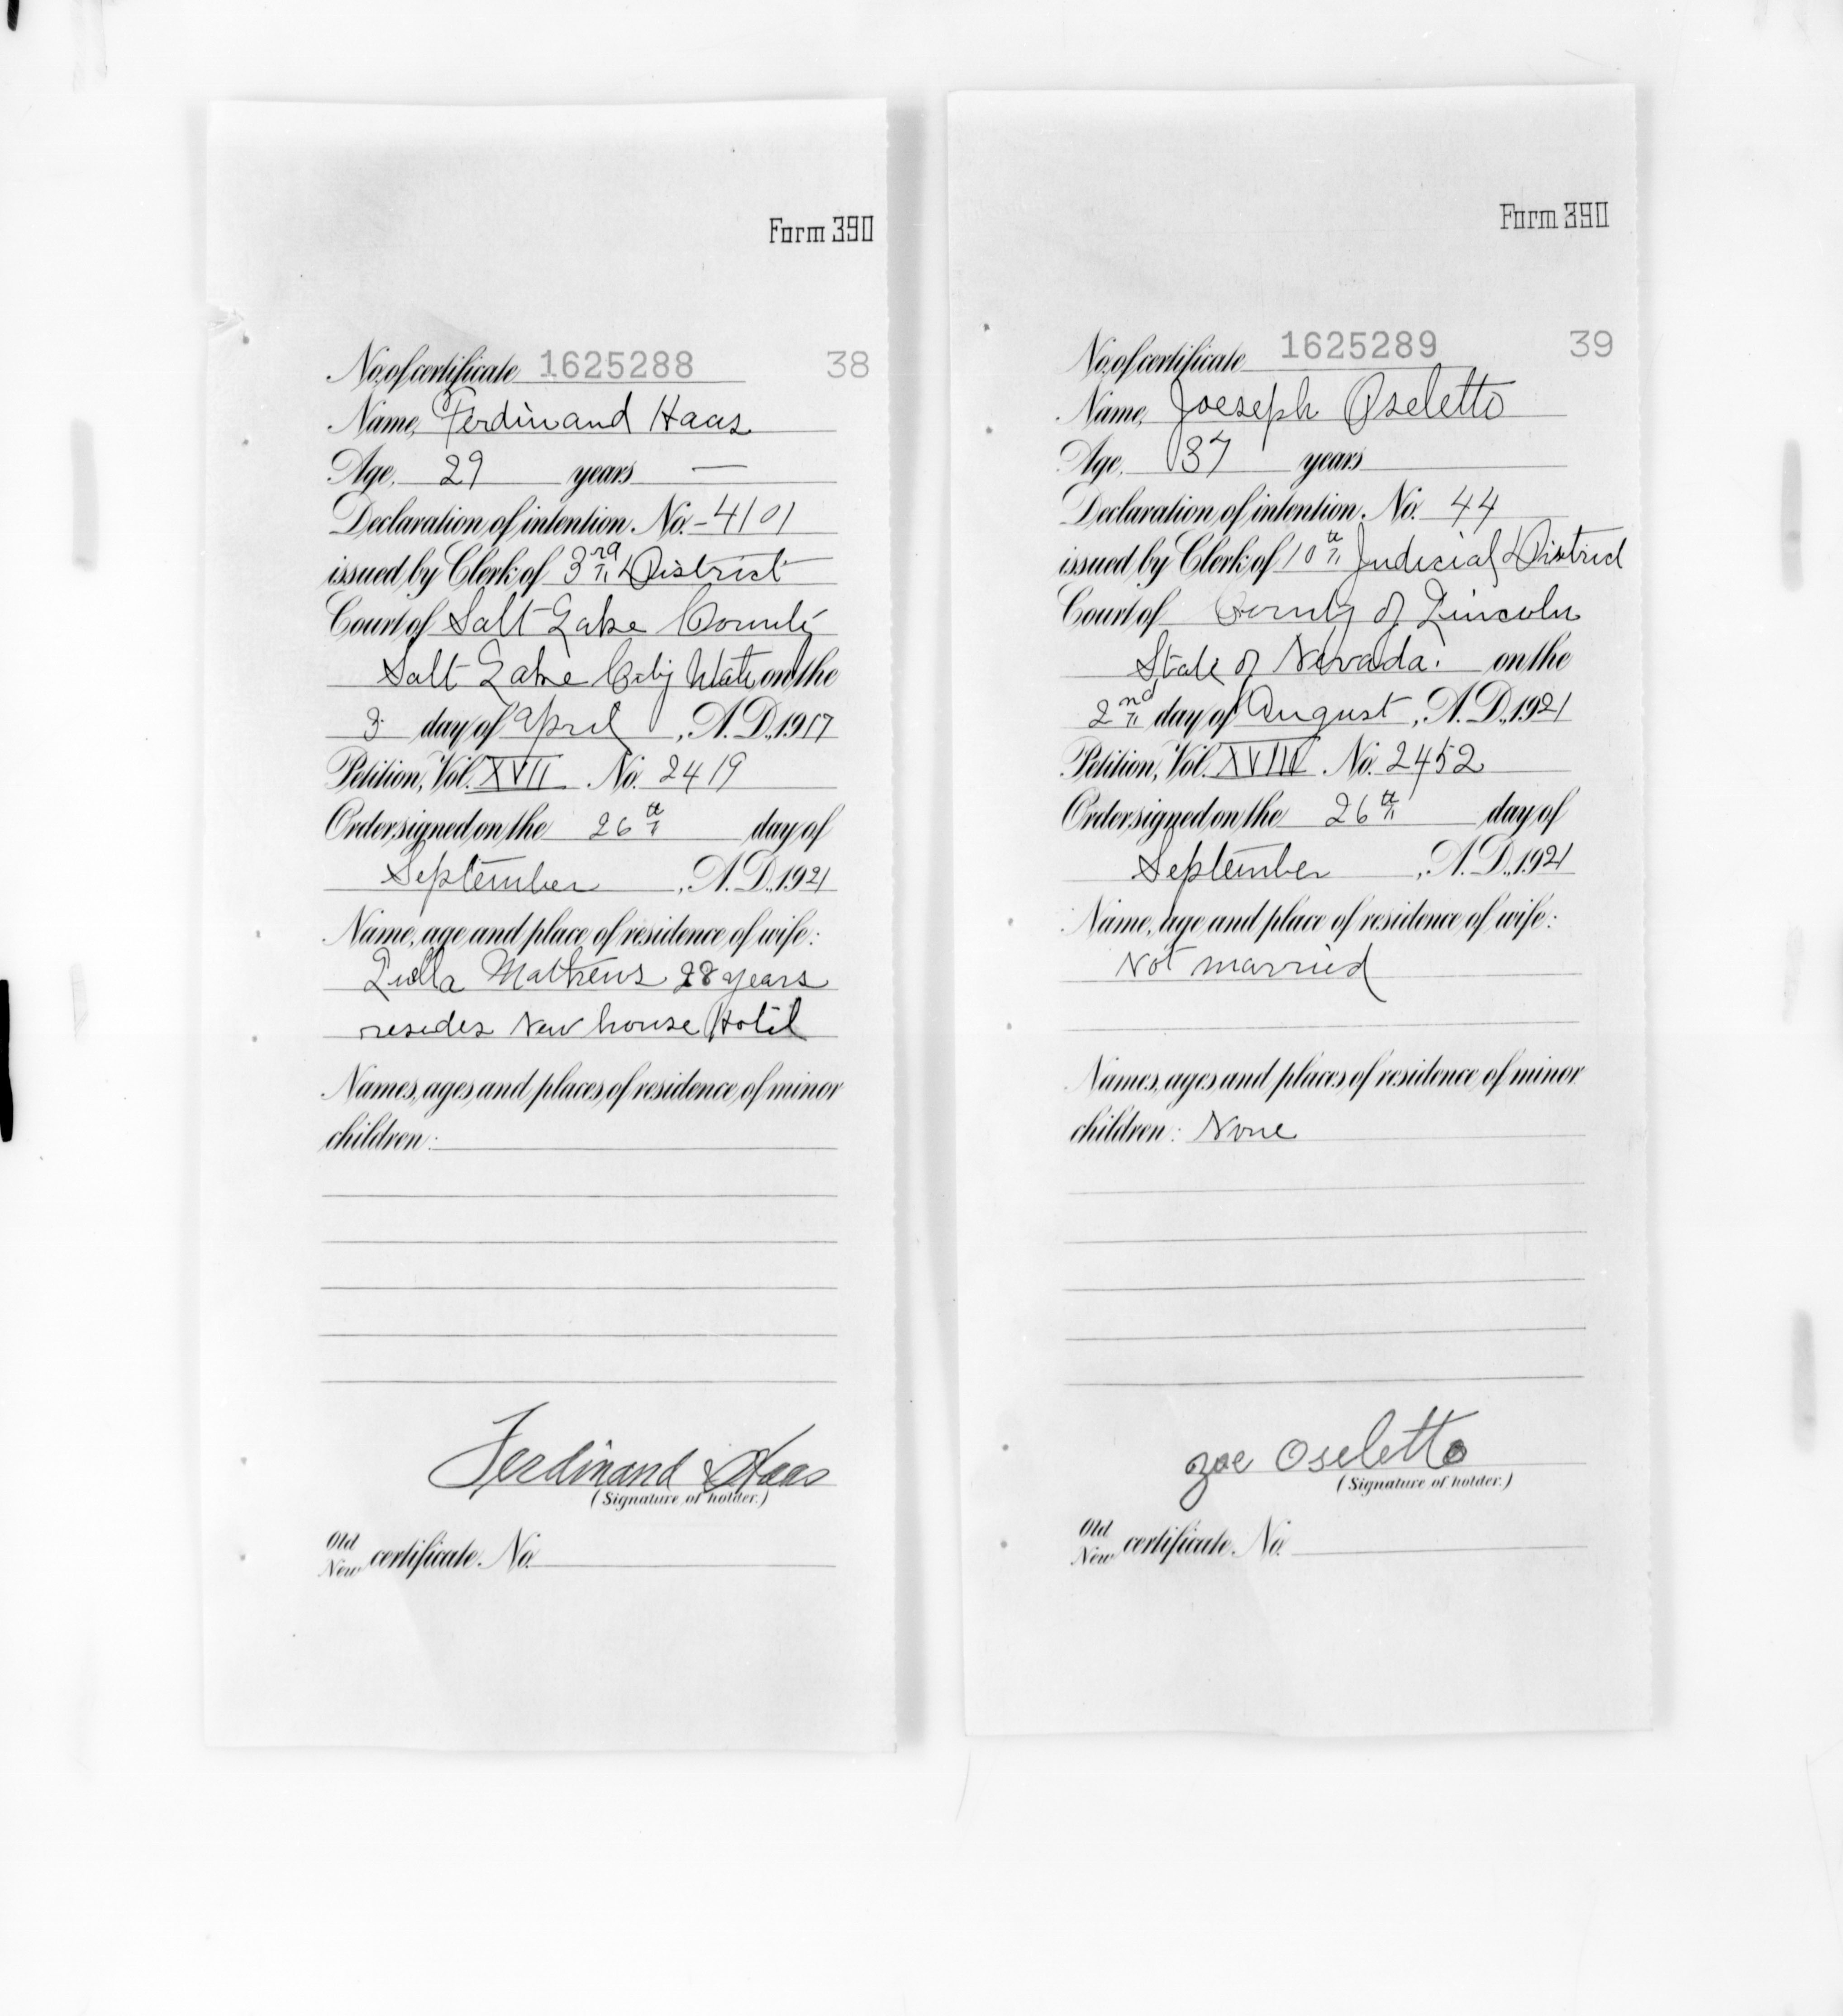 Form 390
No. of certificate 1625288 38
Name, Ferdinand Haas
Age, 29 years —
Declaration of intention No. - 4101
issued by Clerk of 3rd District
Court of Salt Lake County
Salt Lake City Utah on the
3 day of April, A. D., 1917
Petition, Vol. XVII No. 2419
Order signed on the 26th day of
September, A. D., 1921
Name, age and place of residence of wife:
Mathews 28 years
resides New house Hotel
Names, ages and places of residence of minor
children:
Ferdinand Haas
(Signature of holder.)
Old
New certificate No.
Form 390
No. of certificate 1625289 39
Name, Joeseph Oseletto
Age, 37 years
Declaration of intention No. 44
issued by Clerk of 10th Judicial District
Court of County of Lincoln
State of Nevada. on the
2nd day of August, A. D., 1921
Petition, Vol. XVIII No. 2452
Order signed on the 26th day of
September, A. D., 1921
Name, age and place of residence of wife:
Not married
Names, ages and places of residence of minor
children: None
Joe Oseletto
(Signature of holder.)
Old
New certificate No.